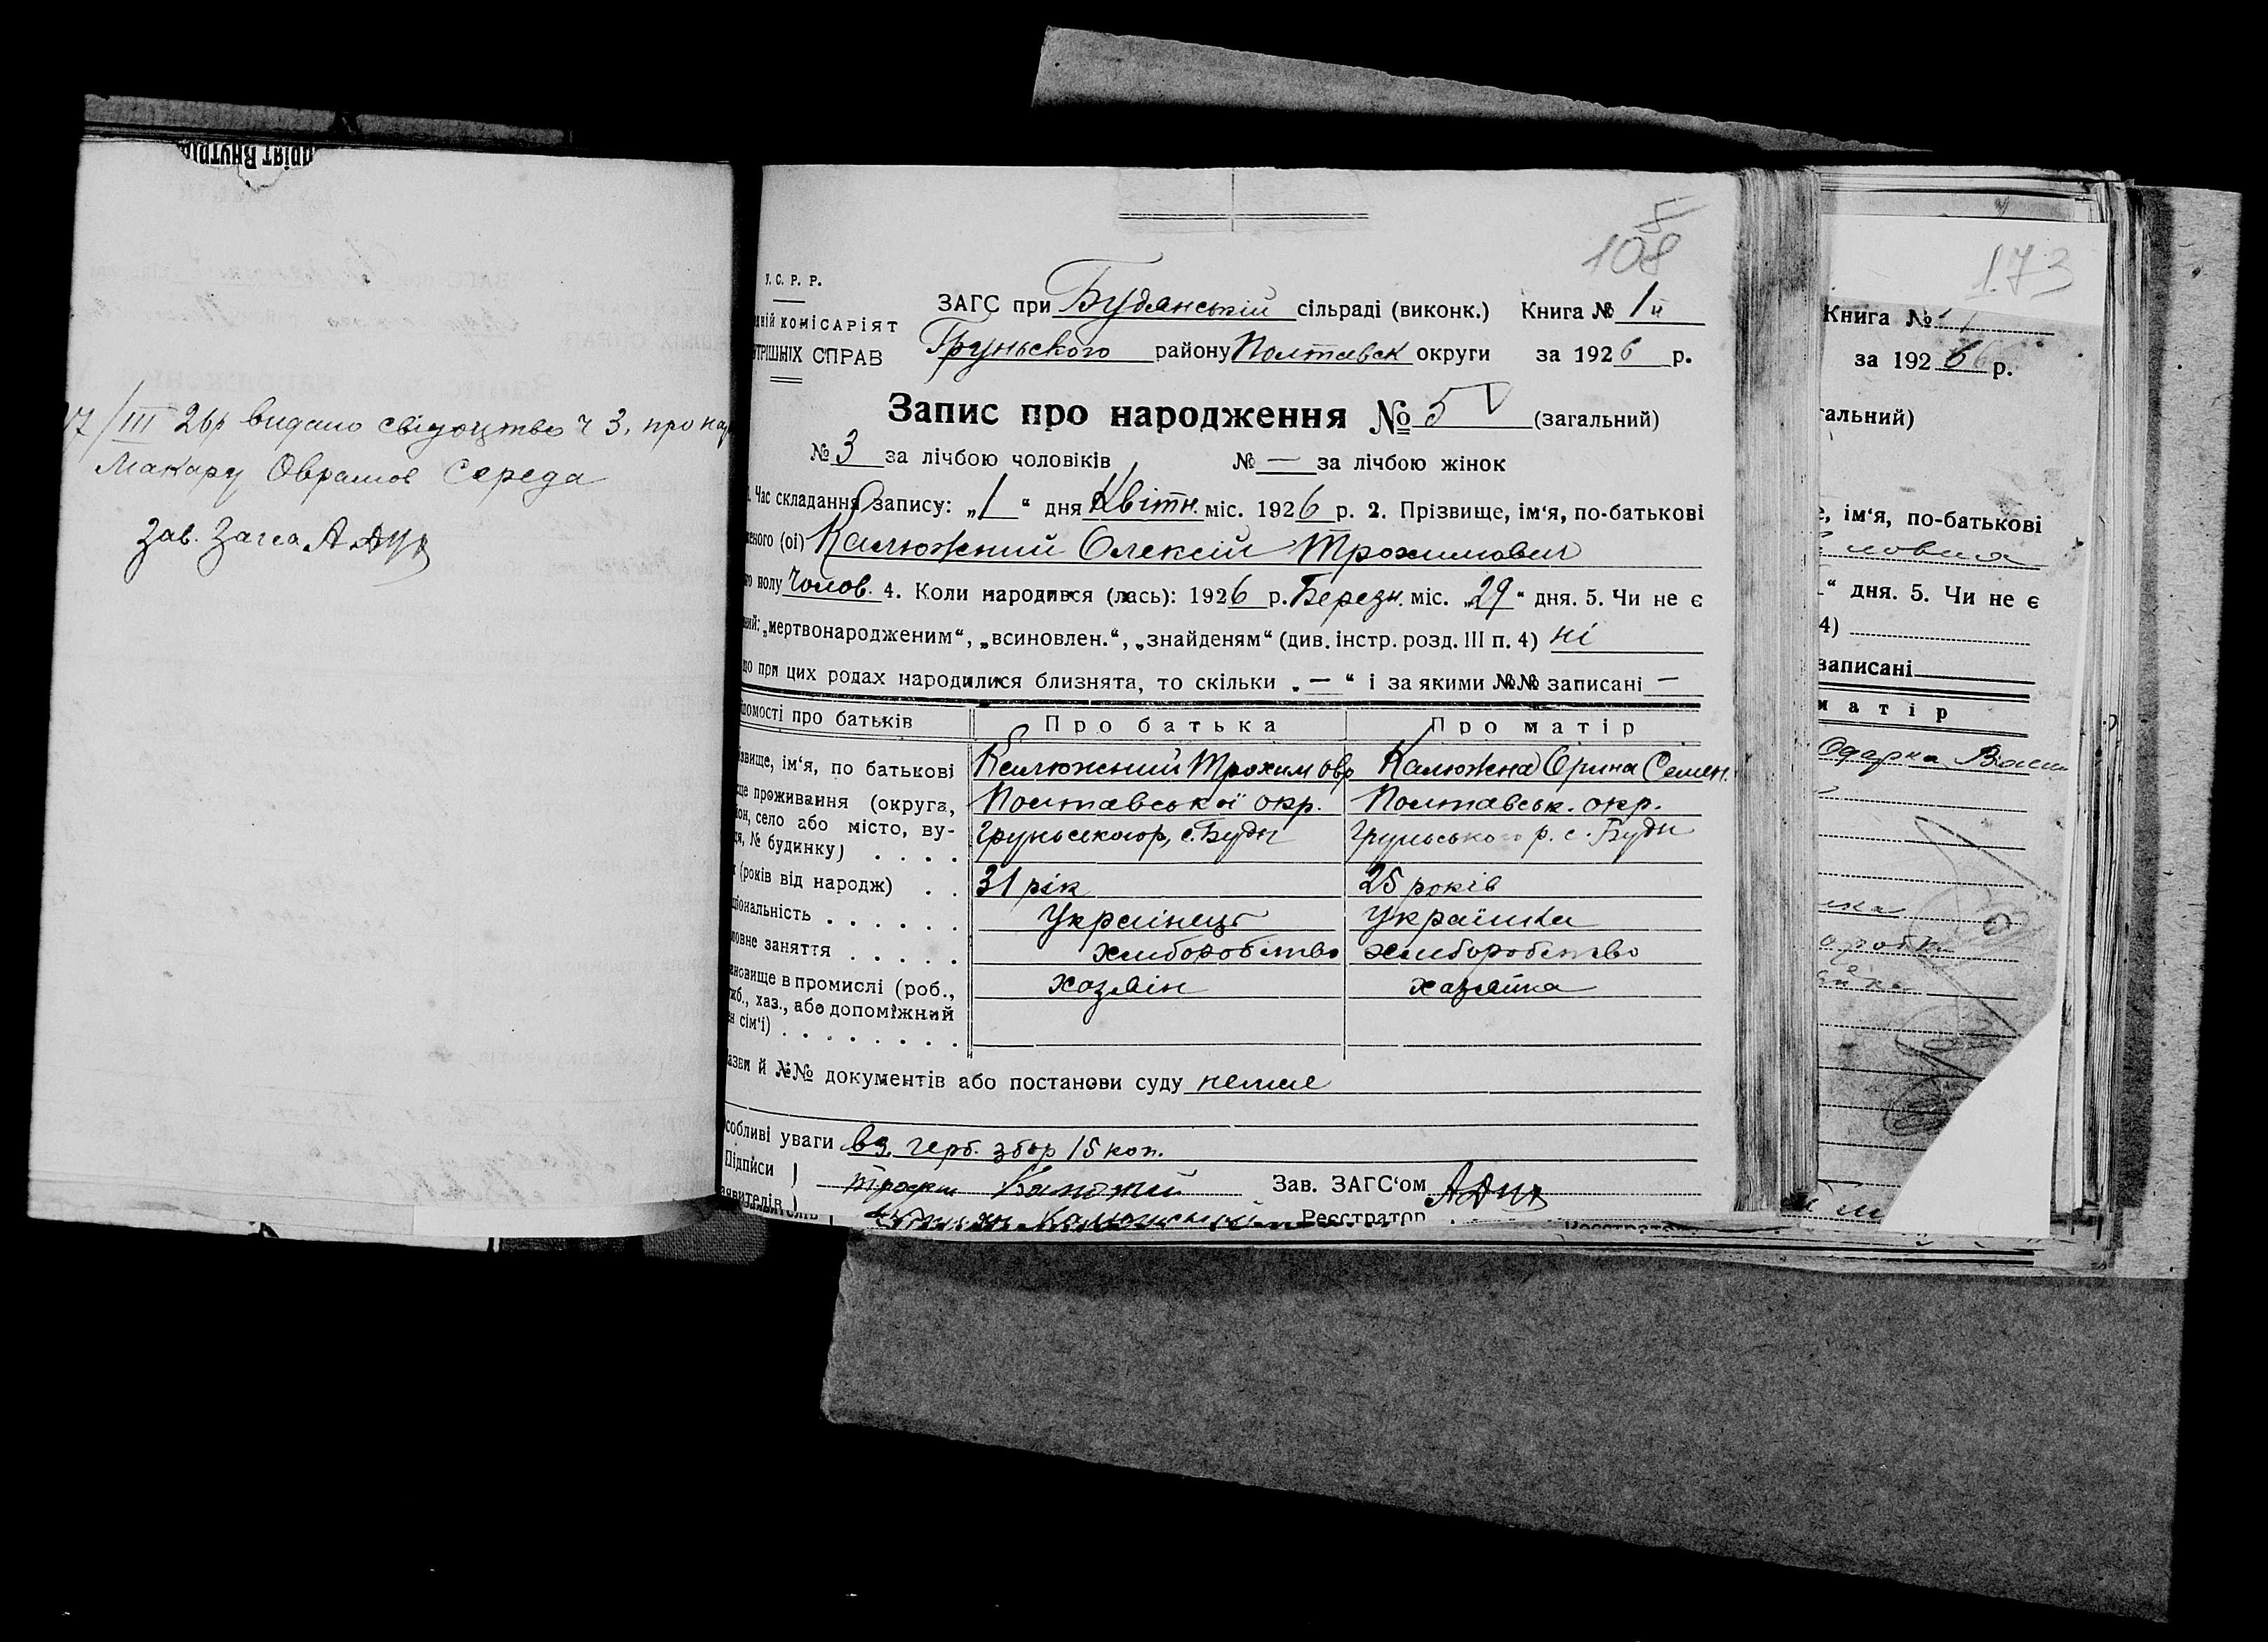 /III 26р видано свідоцтво ч 3, про на
Макару Оврамов Середа
Зав. Загса
5
108
У. С. Р. Р.
ній КОМІСАРІЯТ
ТРІШНІХ СПРАВ
ЗАГС при Будянській сільраді (виконк.) Книга № 1й
Груньского району Полтавськ округи за 1926 р.
Запис про народження № 5 (загальний)
№ 3 за лічбою чоловіків № — за лічбою жінок
Час складання запису: „1“ дня Квітн. міс. 1926 р. 2. Прізвище, ім‘я, по-батькові
еного (ої) Калюжний Олексій Трохимович
го полу Чолов. 4. Коли народився (лась): 1926 р. Березн. міс. „29“ дня. 5. Чи не є
ний: „мертвонародженим“, „всиновлен.“, „знайденям“ (див. інстр. розд. III п. 4) ні
що при цих родах народилися близнята, то скільки „—“ і за якими №№ записані —
домості про батьків Про батька Про матір
звище, ім‘я, по батькові Калюжний Трохим Овр Калюжна Орина Семен.
це проживання (округа, Полтавської окр. Полтавськ. окр.
он, село або місто, ву-
ця, № будинку) . . . . Груньського р, с. Буди Груньського р. с. Буди
(років від народж) . . 31 рік 25 років
ціональність . . . . . . Українець Українка
ловне заняття . . . . . хліборобство хліборобство
ановище в промислі (роб., хазяїн хазяйка
жб., хаз., або допоміжний
н сім‘ї) . . . . . . . .
азви й №№ документів або постанови суду немає
собливі уваги вз. герб. збор 15 коп.
Підписи
явителів Калюжний Зав. ЗАГС‘ом
Калюжний Реєстратор
173
Книга № 1
за 1926 р.
гальний)
е, ім‘я, по-батькові
“ дня. 5. Чи не є
4)
записані
матір
Одарка Васи